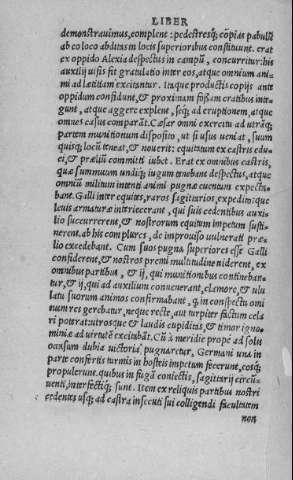 LIBER
demonstrauimus, complent: pedestresq́; cōpias paululū
ab eo loco abditas in locis superioribus constituunt. erat
ex oppido Alexia despectus in campū, concurritur: his
auxilijs uisis fit gratulatio inter eos, atque omnium ani-
mi ad lætitiam excitantur. Itaque productis copijs ante
oppidum considunt, & proximam fossam cratibus inte-
gunt, atque aggere explent, seq́; ad eruptionem, atque
omnes casus comparāt. Cæsar omni exercitu ad utrāq;
partem munitionum disposito, ut si usus ueniat, suum
quisq; locū teneat, & nouerit: equitatum ex castris edu-
ci, & prælium committi iubet. Erat ex omnibus castris,
quæ summum undiq; iugum tenebant despectus, atque
omniū militum intenti animi pugnæ euentum expecta-
bant. Galli inter equites, raros sagittarios, expeditosque
leuis armaturæ interiecerant, qui suis cedentibus auxi-
lio succurrerent, & nostrorum equitum impetum susti-
nerent. ab his complures, de improuiso uulnerati præ-
lio excedebant. Cum suos pugna superiores esse Galli
considerent, & nostros premi multitudine uiderent, ex
omnibus partibus, & ij, qui munitionibus contineban-
tur, & ij, qui ad auxilium conuenerant, clamore, & ulu
latu suorum animos confirmabant, q, in conspectu omi
num res gerebatur, neque recte, aut turpiter factum cela
ri poterat: utrosque & laudis cupiditas, & timor igno-
miniæ ad uirtutē excitabāt. Cū à meridie prope ad solis
occasum dubia uictoria pugnaretur, Germani una in
parte confertis turmis in hosteis impetum fecerunt, eosq́;
propulerunt. quibus in fugā coniectis, sagittarij circū-
uenti, interfectiq́; sunt. Item ex reliquis partibus nostri
cedenteis usq; ad castra insecuti sui colligendi facultatem
non